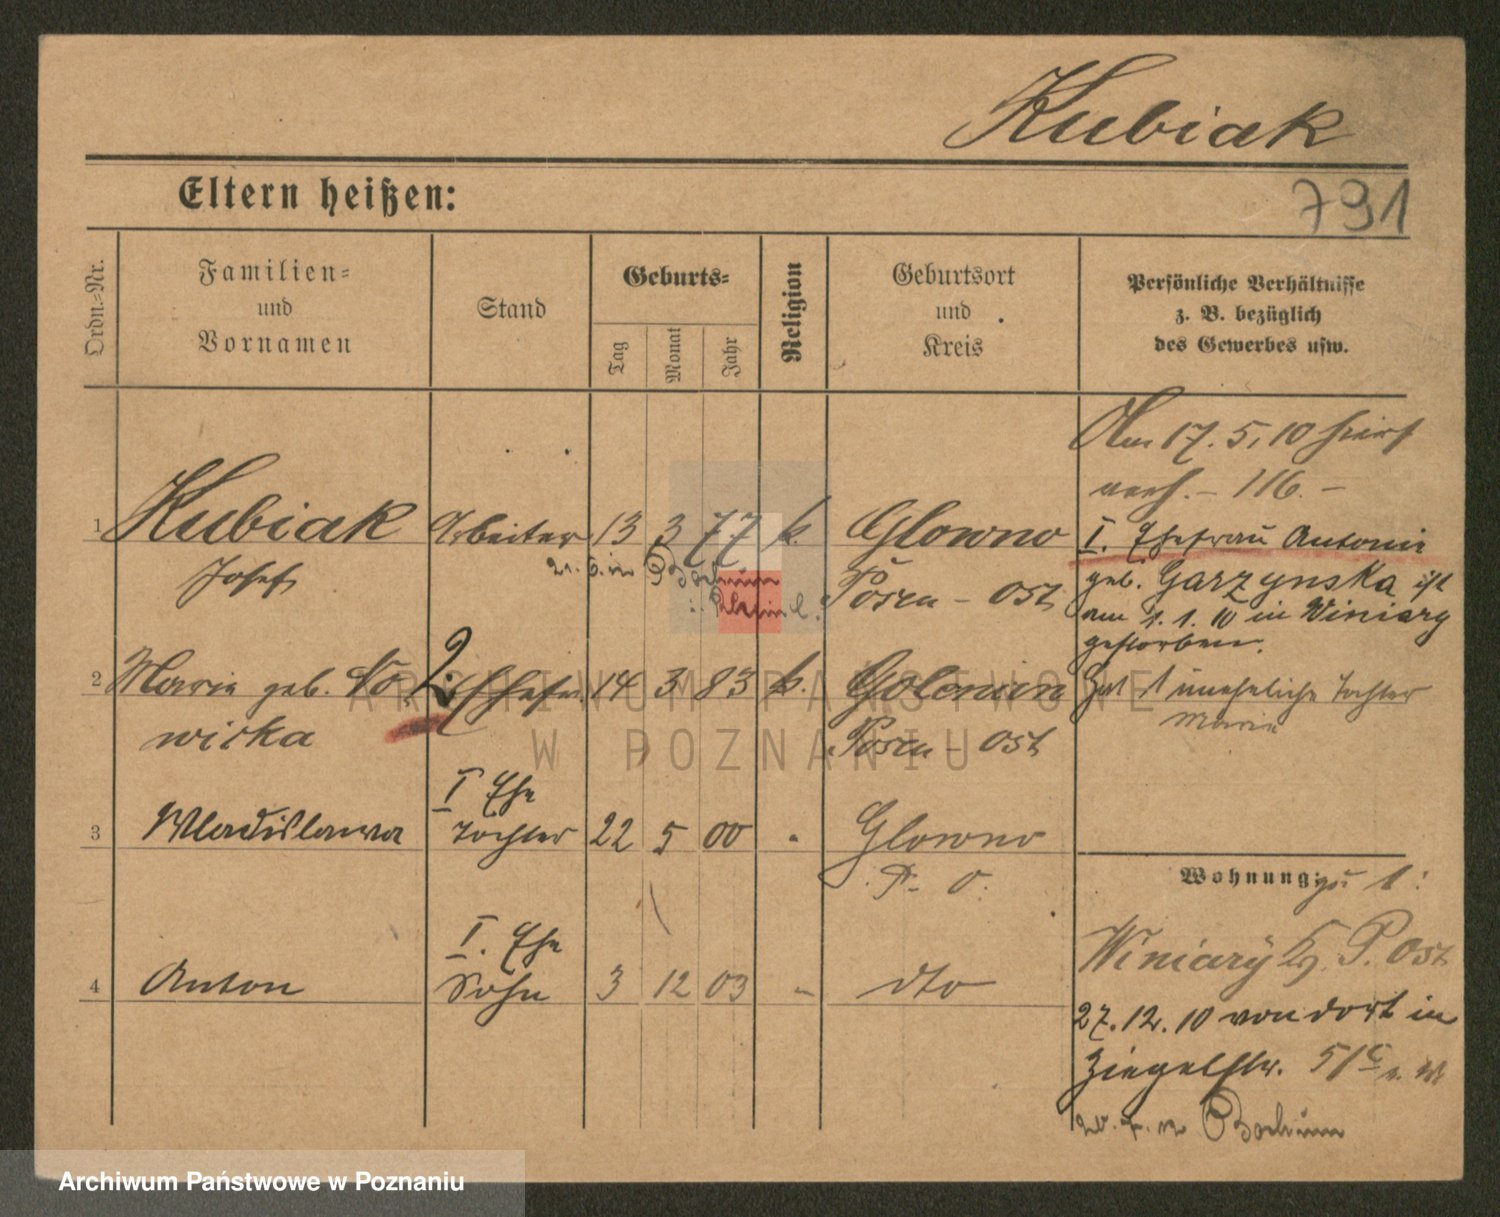 Kubiak
Eltern heißen:
791
Ordn.-Nr.
Familien-
und
Vornamen
Stand
Geburts-
Tag
Monat
Jahr
Religion
Geburtsort
und
Kreis
Persönliche Verhältnisse
z. B. bezüglich
des Gewerbes usw.
Am 17.5.10 hier
verh. - 116. -
1 Kubiak Arbeiter 13 3 77 k. Glowno
I. Ehefrau Antonie
Josef
21. 6. in Bochum
Posen - Ost
geb. Garzynska ist
am 1. 1. 10 in Winiary
gestorben.
2 Maria geb. No 2. Ehefr. 14 3 83 k.
Hat 1 uneheliche Tochter
Maria
wicka
Posen - Ost
I Ehe
3 Wladislawa Tochter 22 5 00 " Glowno
P. O.
Wohnung: zu 1:
I. Ehe
Winiary P. Ost
4 Anton Sohn 3 12 03 " dto
27.12.10 von dort in
Ziegelstr. 51
in Bochum
ARCHIWUM PAŃSTWOWE
W POZNANIU
Archiwum Państwowe w Poznaniu